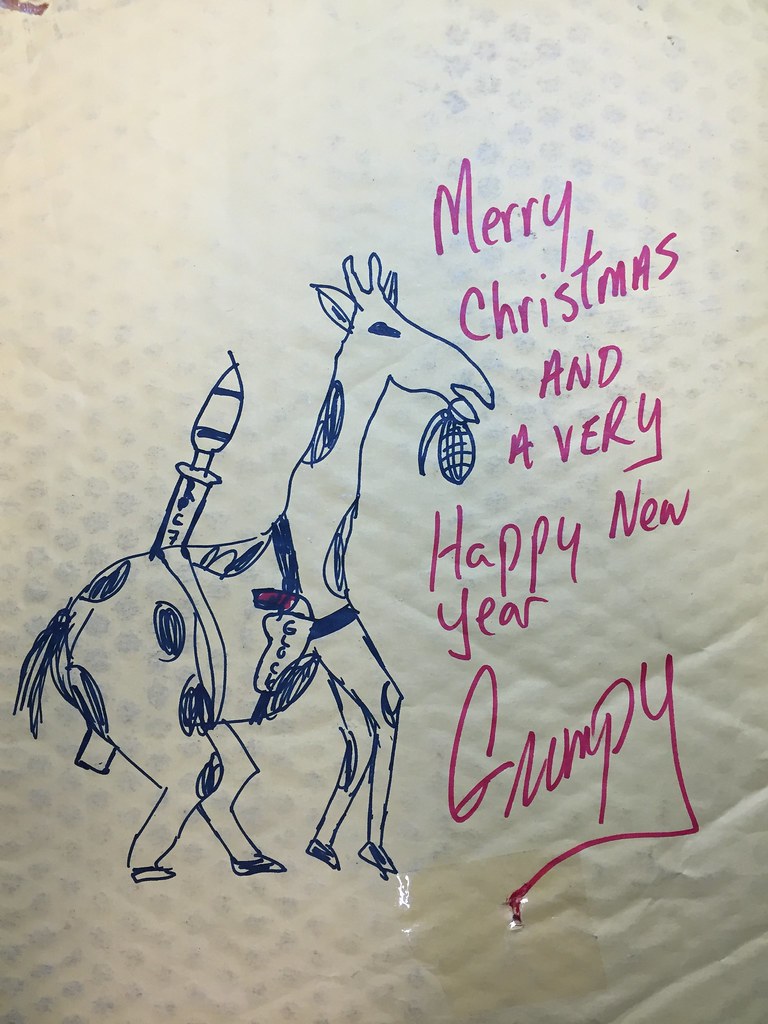 Merry
Christmas
AND
A VERY
Happy New
year
Grumpy
Glock